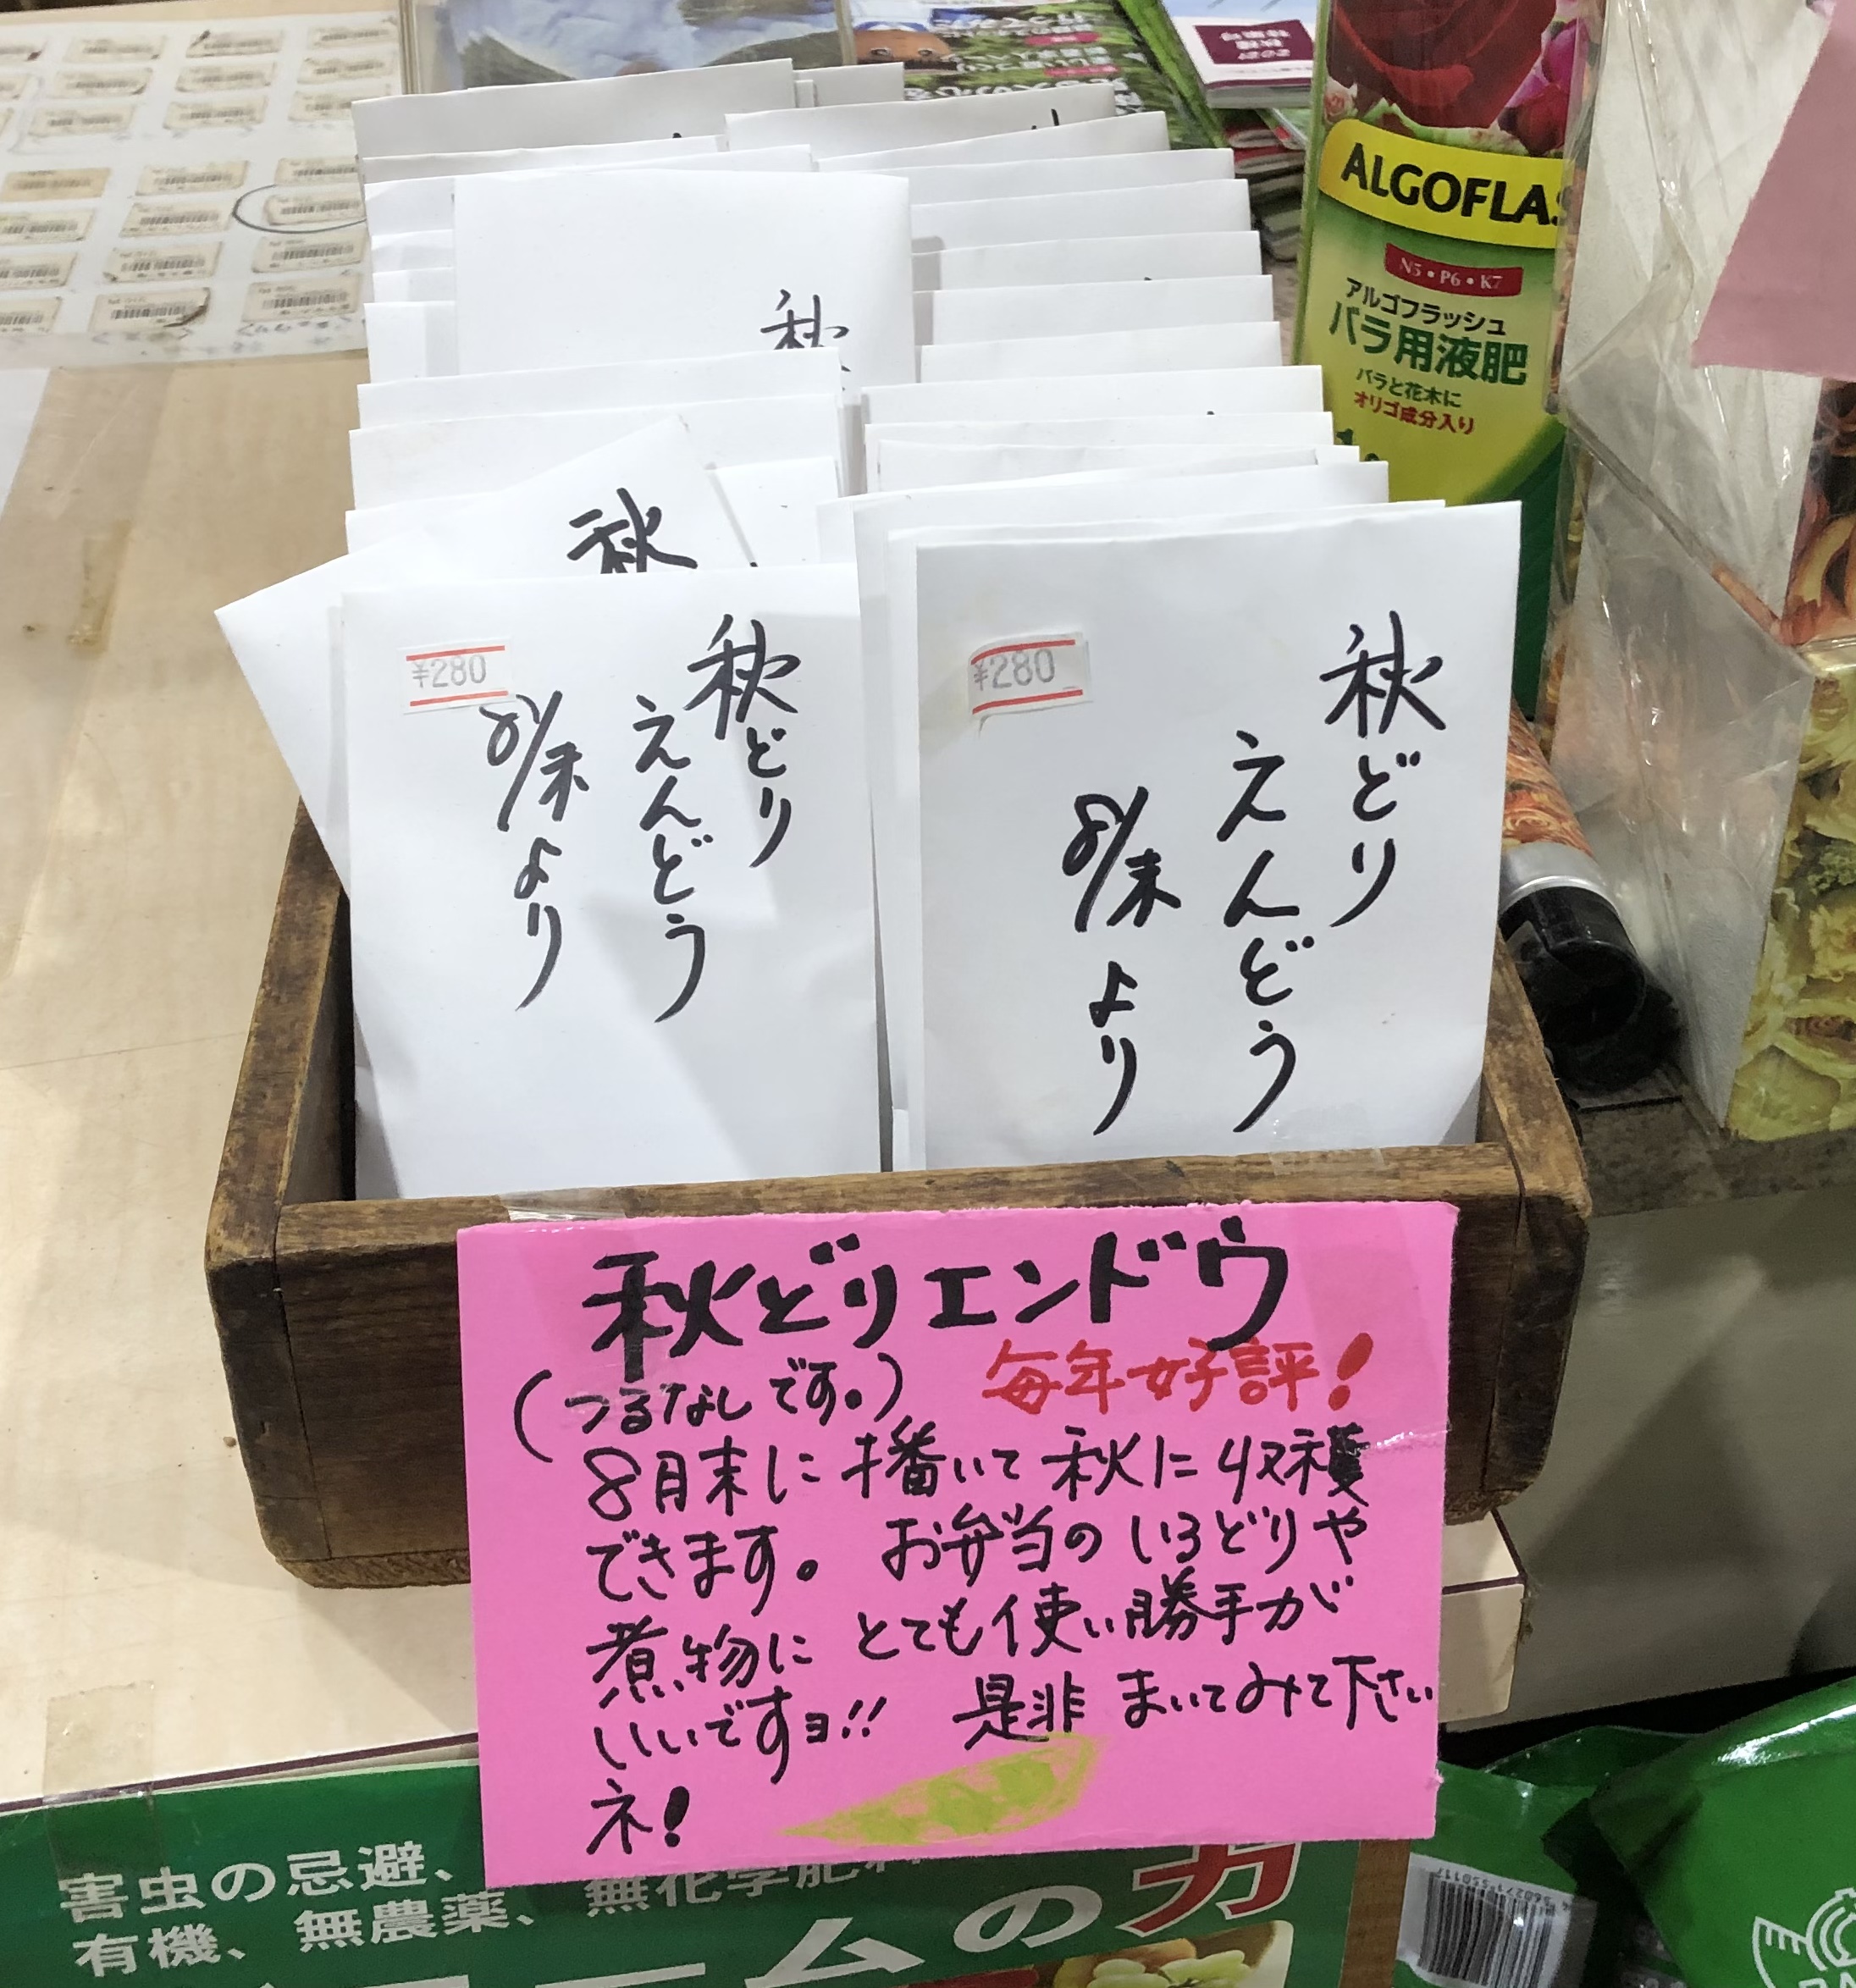 ALGOFLAS
N5・P6・K7
アルゴフラッシュ
バラ用液肥
バラと花木に
オリゴ成分入り
秋
秋
¥280
秋どり
えんどう
8/末より
¥280
秋どり
えんどう
8/末より
秋どりエンドウ
(つるなしです。) 毎年好評!
8月末に播いて秋に収穫
できます。 お弁当のいろどりや
煮物に とても使い勝手が
いいですヨ!! 是非 まいてみて下さい
ネ!
害虫の忌避、
有機、無農薬、無化学肥料
ームの力